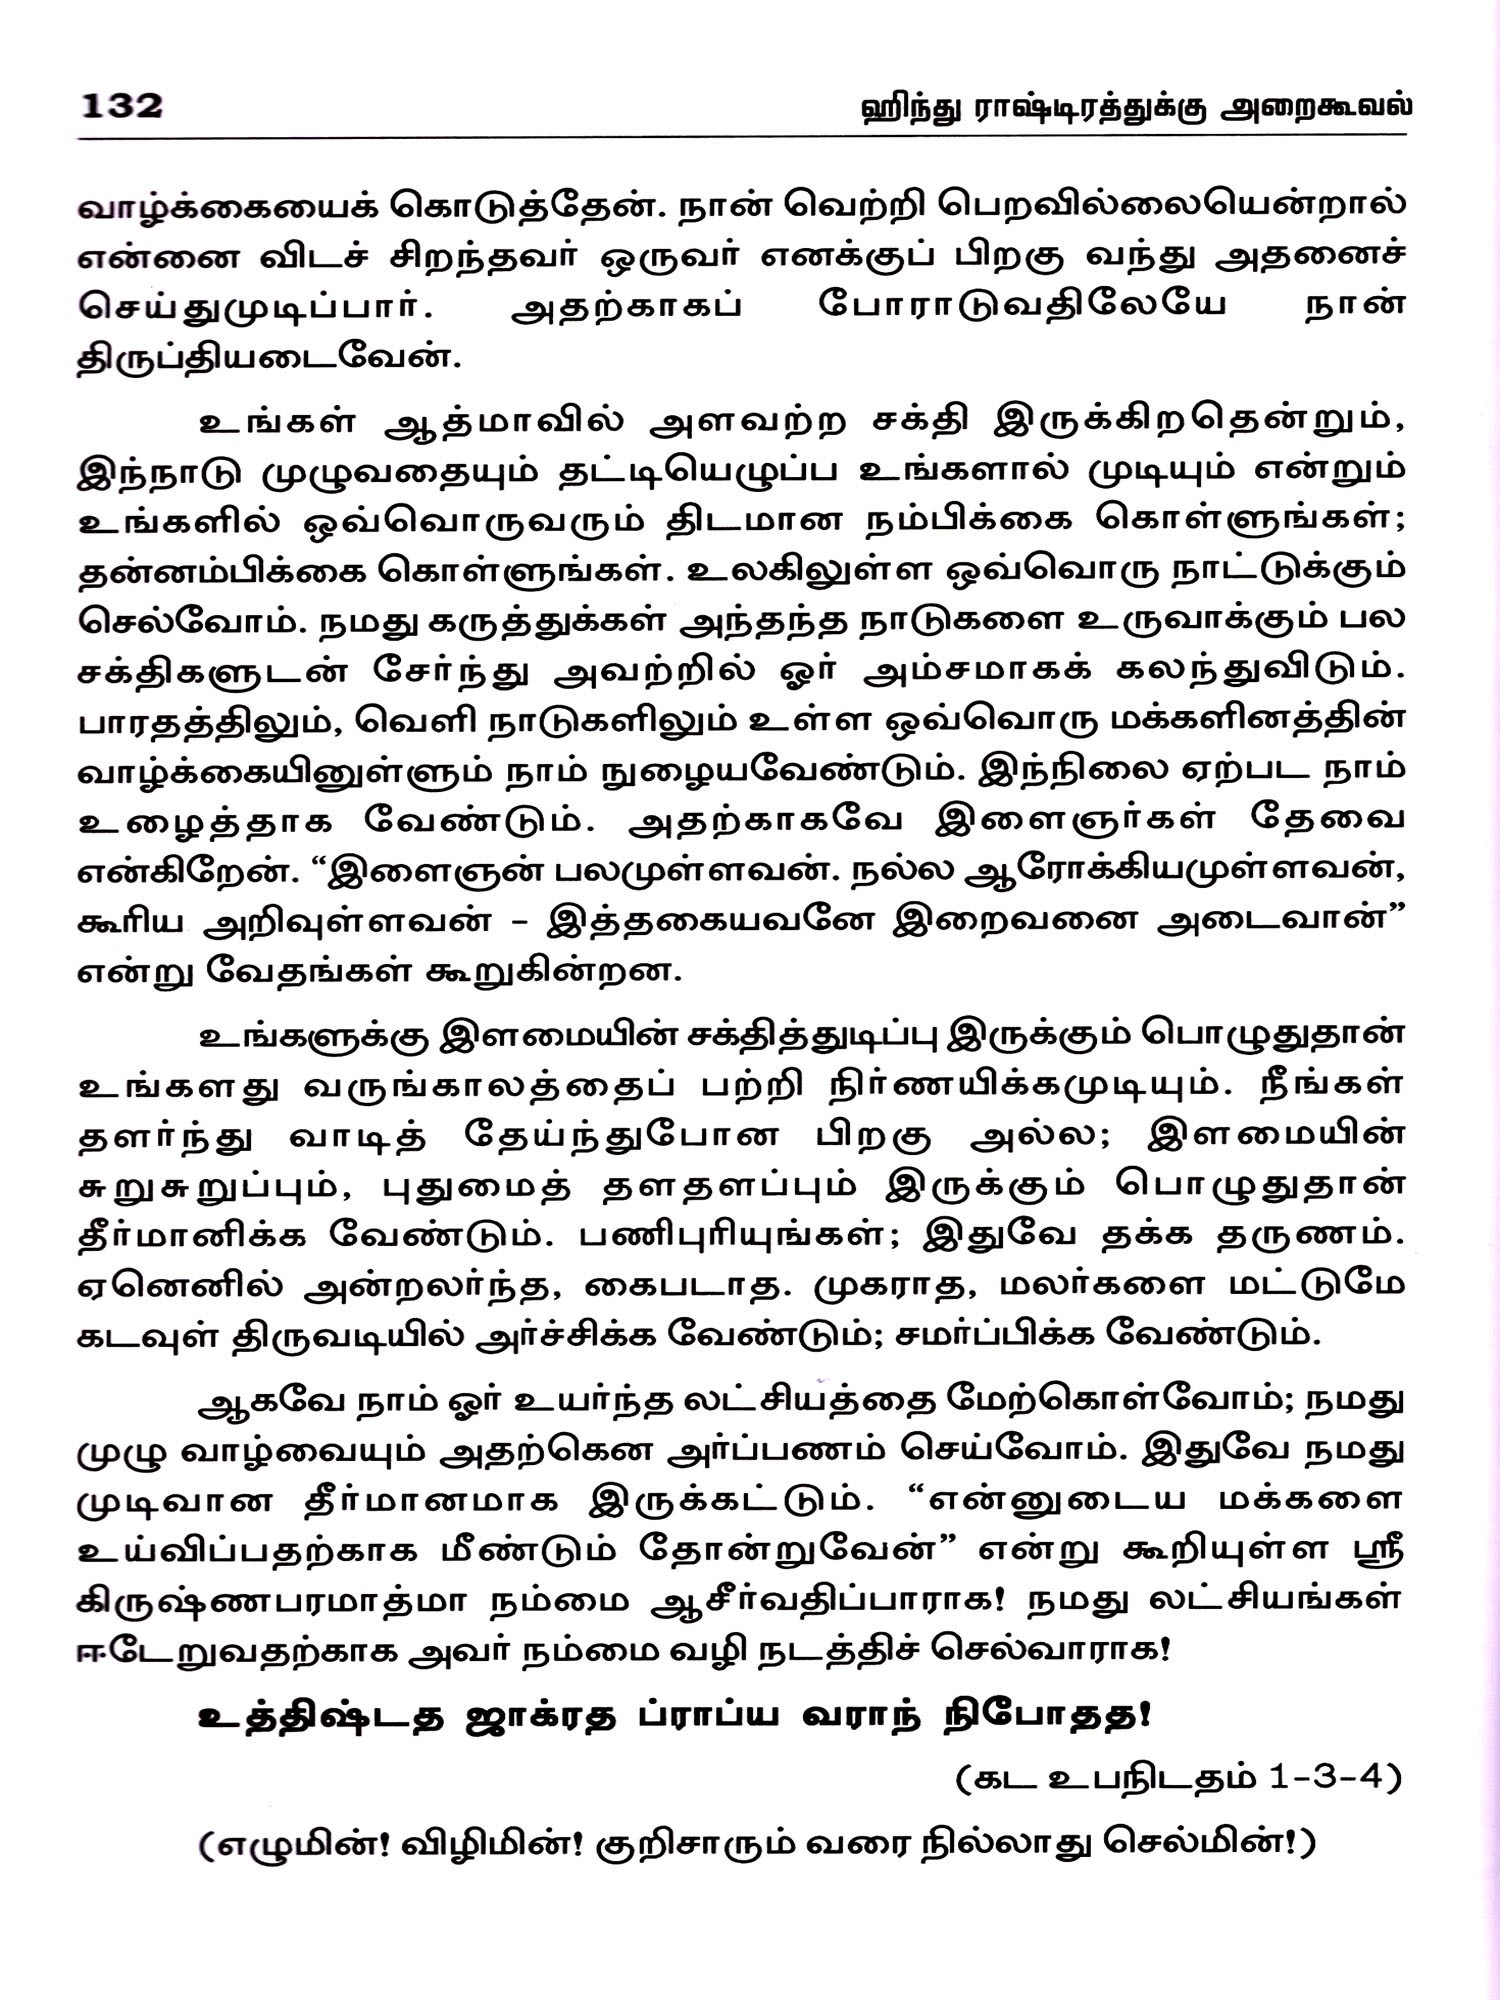 132
ஹிந்து ராஷ்டிரத்துக்கு அறைகூவல்
வாழ்க்கையைக் கொடுத்தேன். நான் வெற்றி பெறவில்லையென்றால்
என்னை விடச் சிறந்தவர் ஒருவர் எனக்குப் பிறகு வந்து அதனைச்
செய்துமுடிப்பார். அதற்காகப் போராடுவதிலேயே நான்
திருப்தியடைவேன்.
உங்கள் ஆத்மாவில் அளவற்ற சக்தி இருக்கிறதென்றும்,
இந்நாடு முழுவதையும் தட்டியெழுப்ப உங்களால் முடியும் என்றும்
உங்களில் ஒவ்வொருவரும் திடமான நம்பிக்கை கொள்ளுங்கள்;
தன்னம்பிக்கை கொள்ளுங்கள். உலகிலுள்ள ஒவ்வொரு நாட்டுக்கும்
செல்வோம். நமது கருத்துக்கள் அந்தந்த நாடுகளை உருவாக்கும் பல
சக்திகளுடன் சேர்ந்து அவற்றில் ஓர் அம்சமாகக் கலந்துவிடும்.
பாரதத்திலும், வெளி நாடுகளிலும் உள்ள ஒவ்வொரு மக்களினத்தின்
வாழ்க்கையினுள்ளும் நாம் நுழையவேண்டும். இந்நிலை ஏற்பட நாம்
உழைத்தாக வேண்டும். அதற்காகவே இளைஞர்கள் தேவை
என்கிறேன். “இளைஞன் பலமுள்ளவன். நல்ல ஆரோக்கியமுள்ளவன்,
கூரிய அறிவுள்ளவன் – இத்தகையவனே இறைவனை அடைவான்”
என்று வேதங்கள் கூறுகின்றன.
உங்களுக்கு இளமையின் சக்தித்துடிப்பு இருக்கும் பொழுதுதான்
உங்களது வருங்காலத்தைப் பற்றி நிர்ணயிக்கமுடியும். நீங்கள்
தளர்ந்து வாடித் தேய்ந்துபோன பிறகு அல்ல; இளமையின்
சுறுசுறுப்பும், புதுமைத் தளதளப்பும் இருக்கும் பொழுதுதான்
தீர்மானிக்க வேண்டும். பணிபுரியுங்கள்; இதுவே தக்க தருணம்.
ஏனெனில் அன்றலர்ந்த, கைபடாத. முகராத, மலர்களை மட்டுமே
கடவுள் திருவடியில் அர்ச்சிக்க வேண்டும்; சமர்ப்பிக்க வேண்டும்.
ஆகவே நாம் ஓர் உயர்ந்த லட்சியத்தை மேற்கொள்வோம்; நமது
முழு வாழ்வையும் அதற்கென அர்ப்பணம் செய்வோம். இதுவே நமது
முடிவான தீர்மானமாக இருக்கட்டும். “என்னுடைய மக்களை
உய்விப்பதற்காக மீண்டும் தோன்றுவேன்” என்று கூறியுள்ள ஸ்ரீ
கிருஷ்ணபரமாத்மா நம்மை ஆசீர்வதிப்பாராக! நமது லட்சியங்கள்
ஈடேறுவதற்காக அவர் நம்மை வழி நடத்திச் செல்வாராக!
உத்திஷ்டத ஜாக்ரத ப்ராப்ய வராந் நிபோதத!
(கட உபநிடதம் 1–3–4)
(எழுமின்! விழிமின்! குறிசாரும் வரை நில்லாது செல்மின்!)